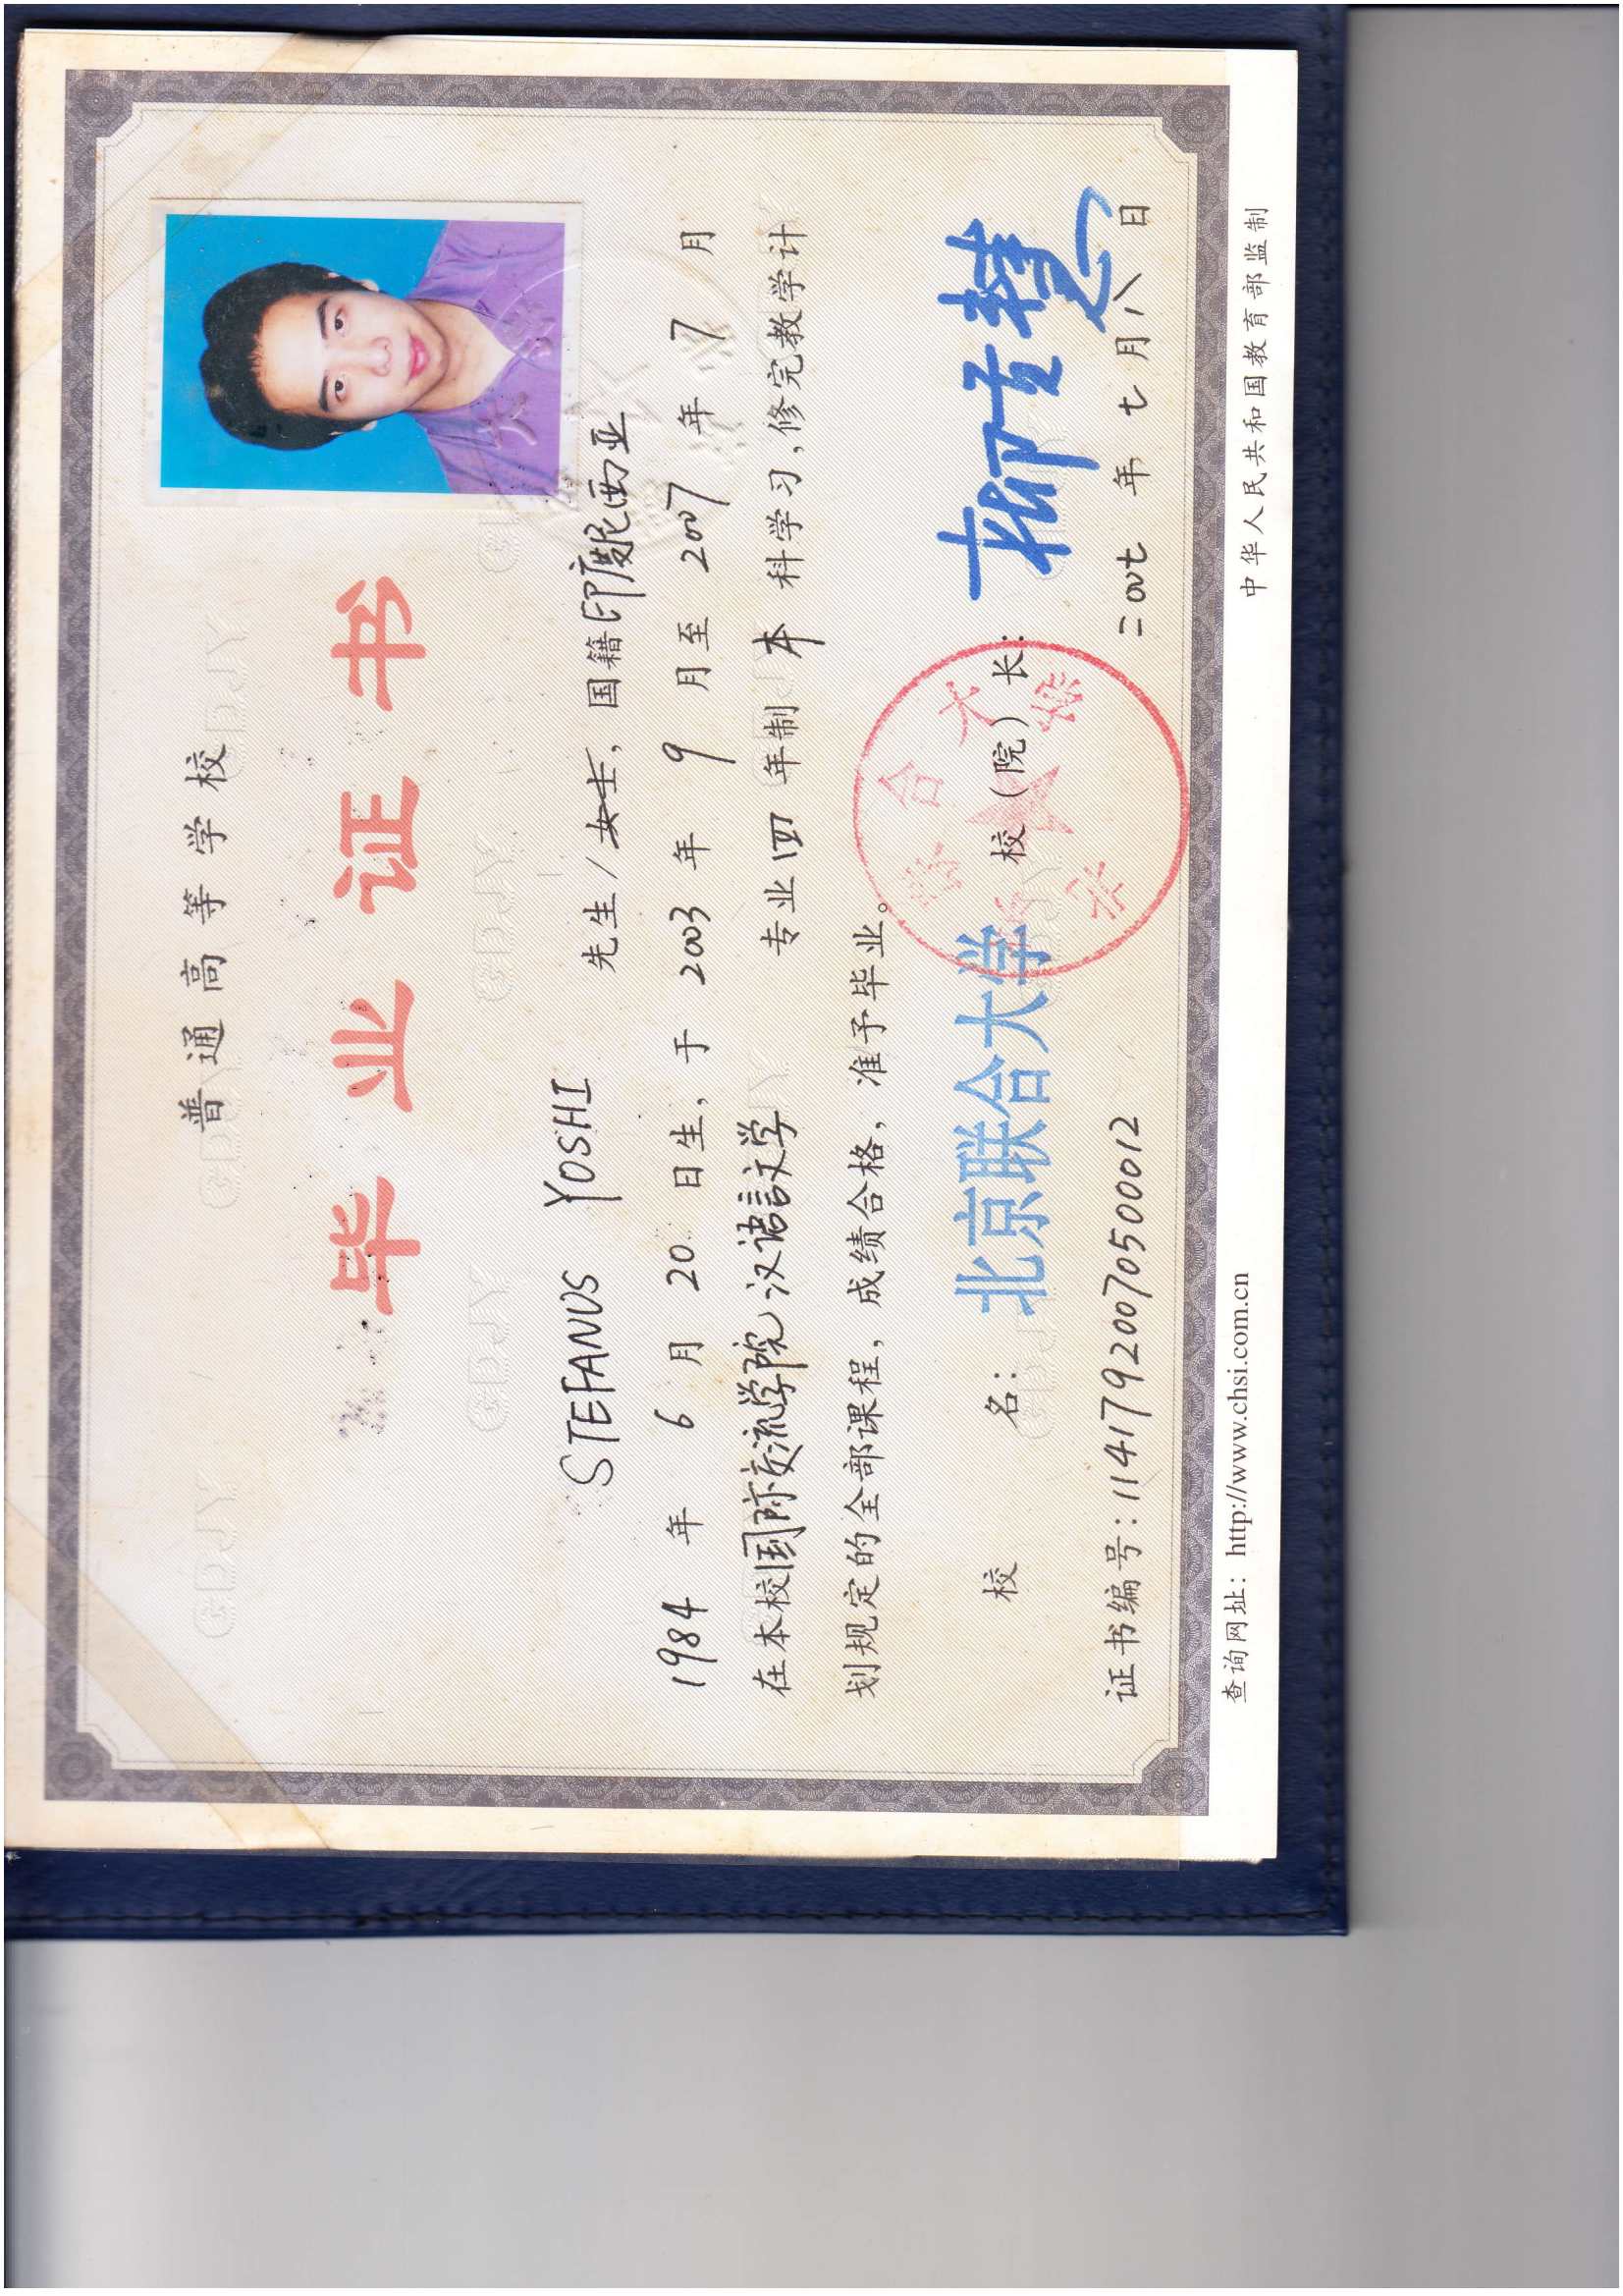 普通高等学校
毕业证书
STEFANUS YOSHI 先生/女士，国籍印度尼西亚
1984 年 6 月 20 日生，于 2003 年 9 月至 2007 年 7 月
在本校国际交流学院汉语言文学 专业四年制本科学习，修完教学计
划规定的全部课程，成绩合格，准予毕业。
校 名：北京联合大学 校（院）长：
证书编号：114179200705500012 二〇〇七年七月八日
查询网址：http://www.chsi.com.cn 中华人民共和国教育部监制